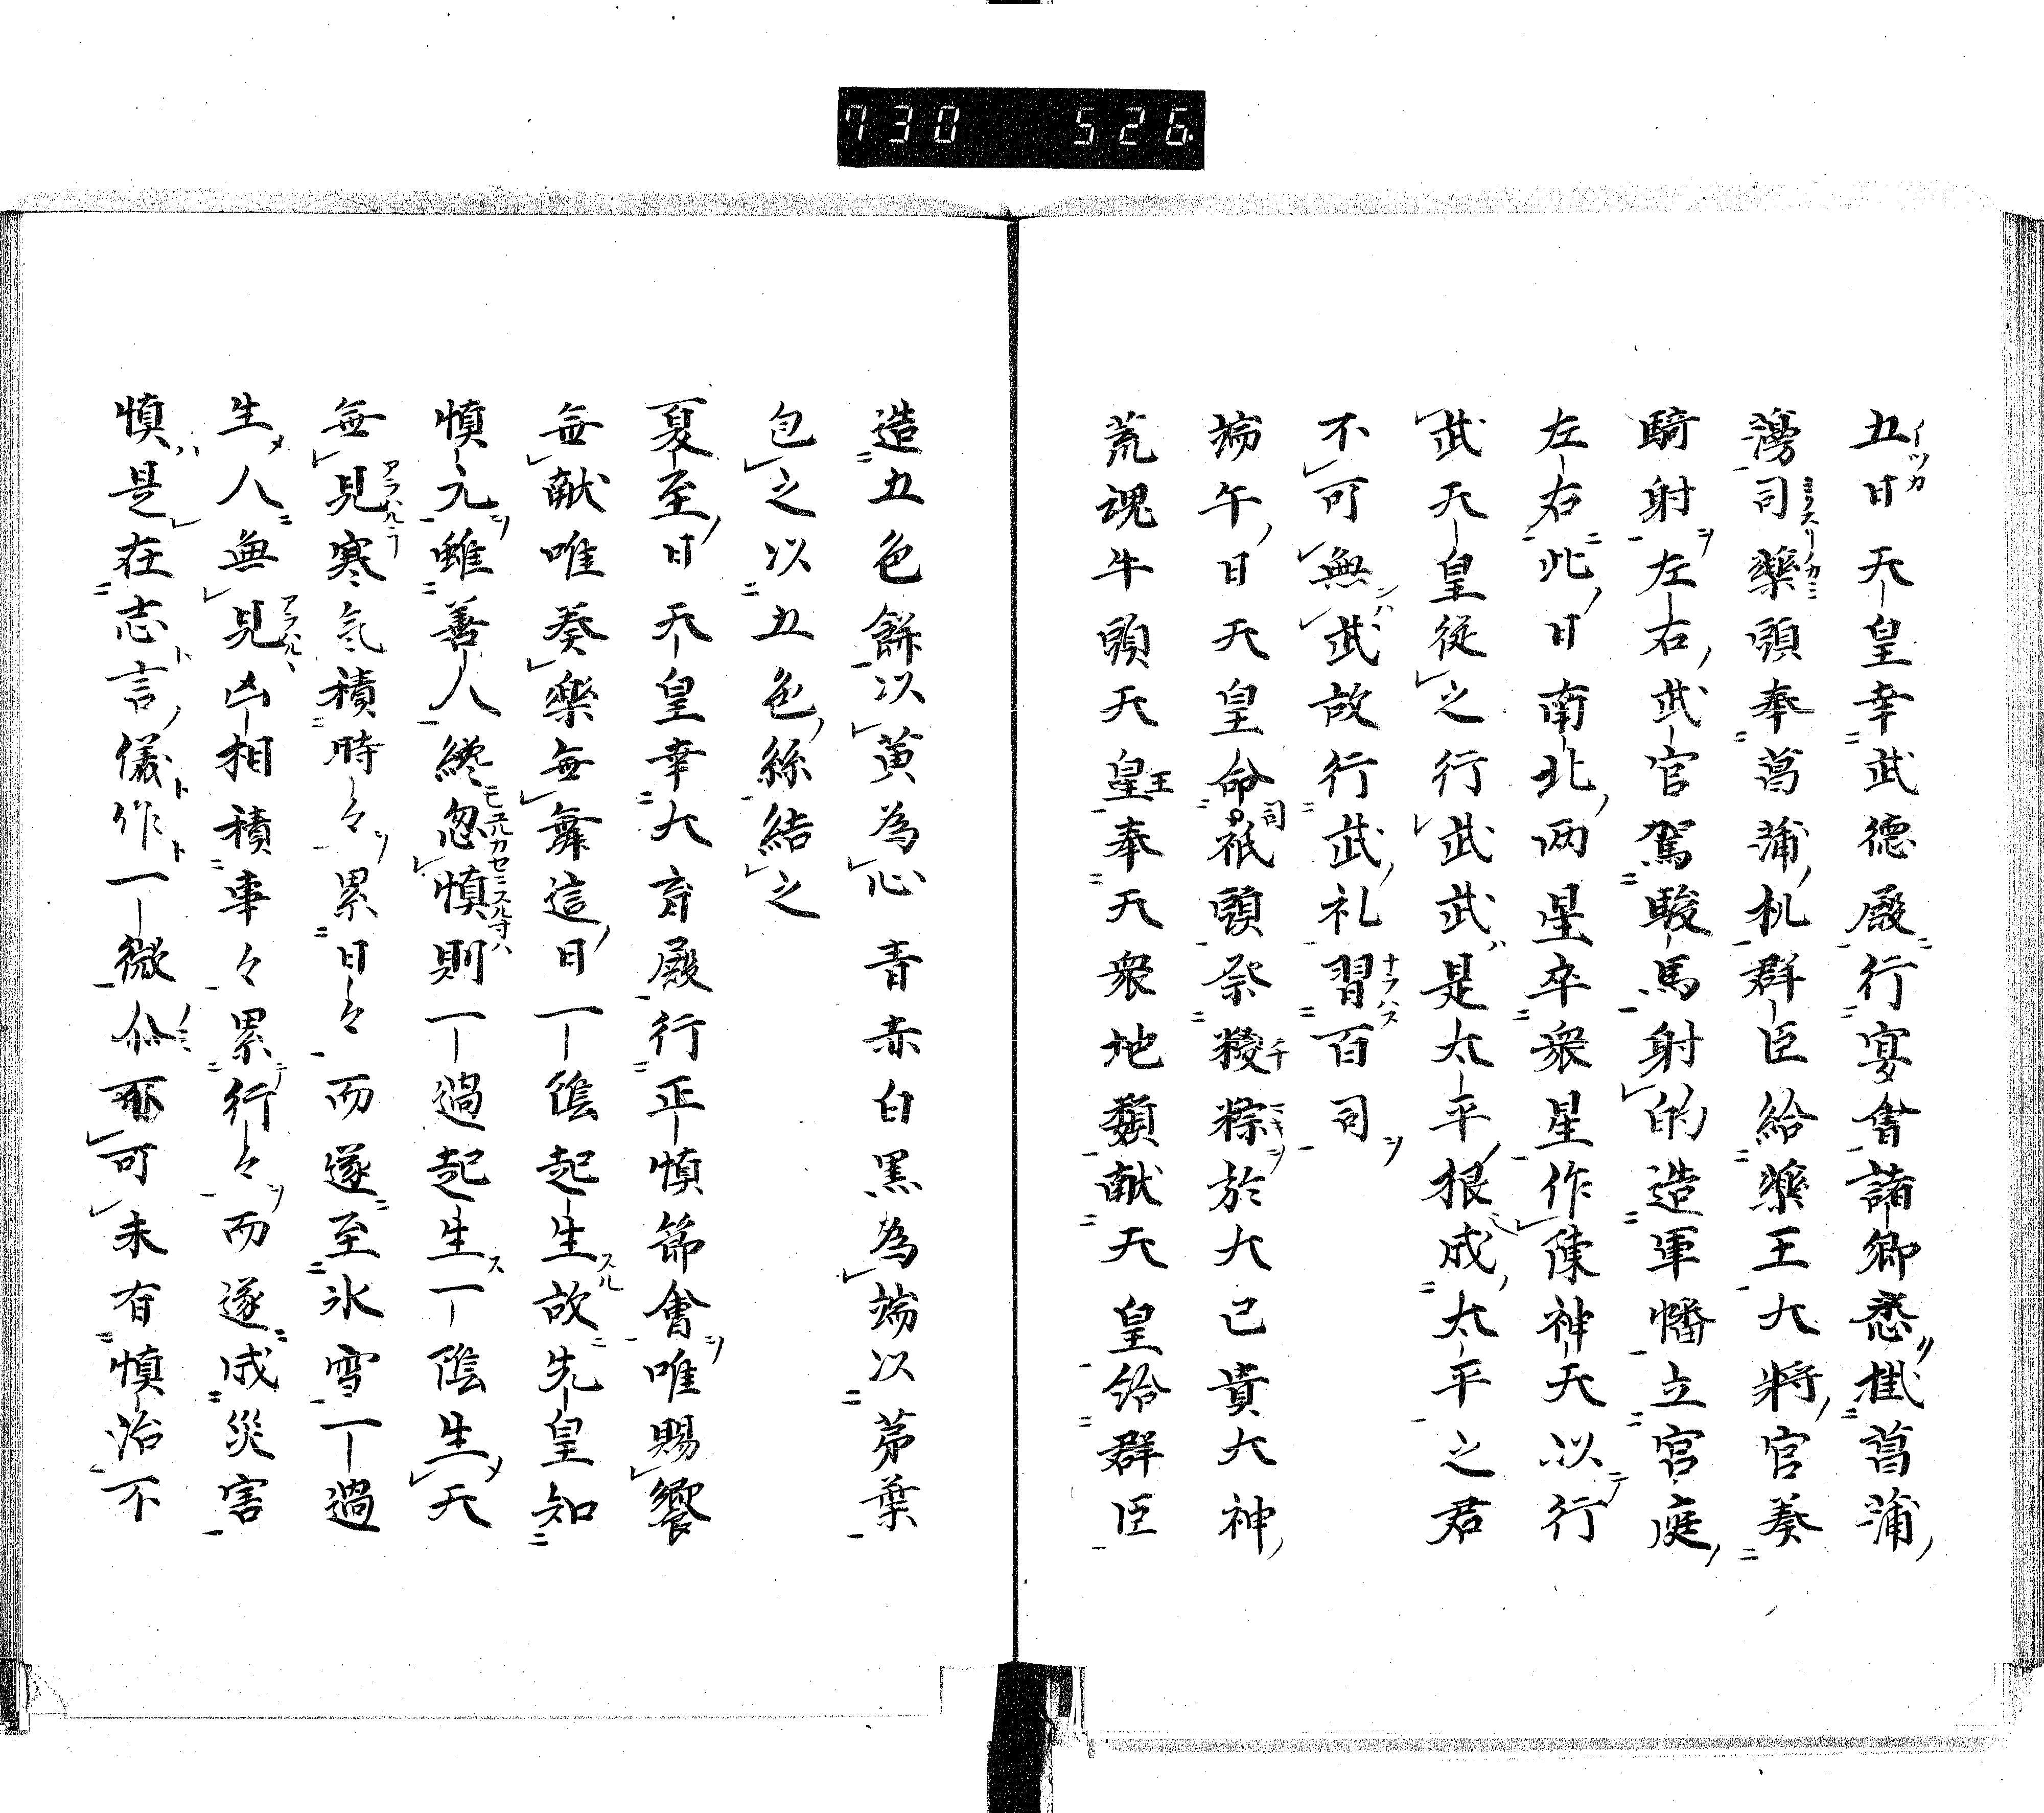 730 526
五日天皇幸武德殿行宴會諸卿悉掛菖蒲
司藥頭奉菖蒲机群臣給藥王大將官奏
騎射左右武官駕駿馬射的造軍幡立宮庭
左右此日南北两星卒衆星作陳神天以行
武天皇從之行武武是太平根成太平之君
不可無武故行武礼習百司
端午日天皇命司祇頭祭糭粽於大己貴大神
荒魂牛頭天皇王奉天衆地類献天皇給群臣
造五色餅以黄為心青赤白黒為端以茅葉
包之以五色絲結之
夏至日天皇幸大育殿行正慎節會唯賜饗
無献唯奏樂無舞這日一陰起生故先皇知
慎元雖善人纔忽慎則一過起生一陰生天
無見寒氣積時々累日々而遂至氷雪一過
生人無見凶相積事々累行々而遂成災害
慎是在志言儀作一微不可未有慎治不